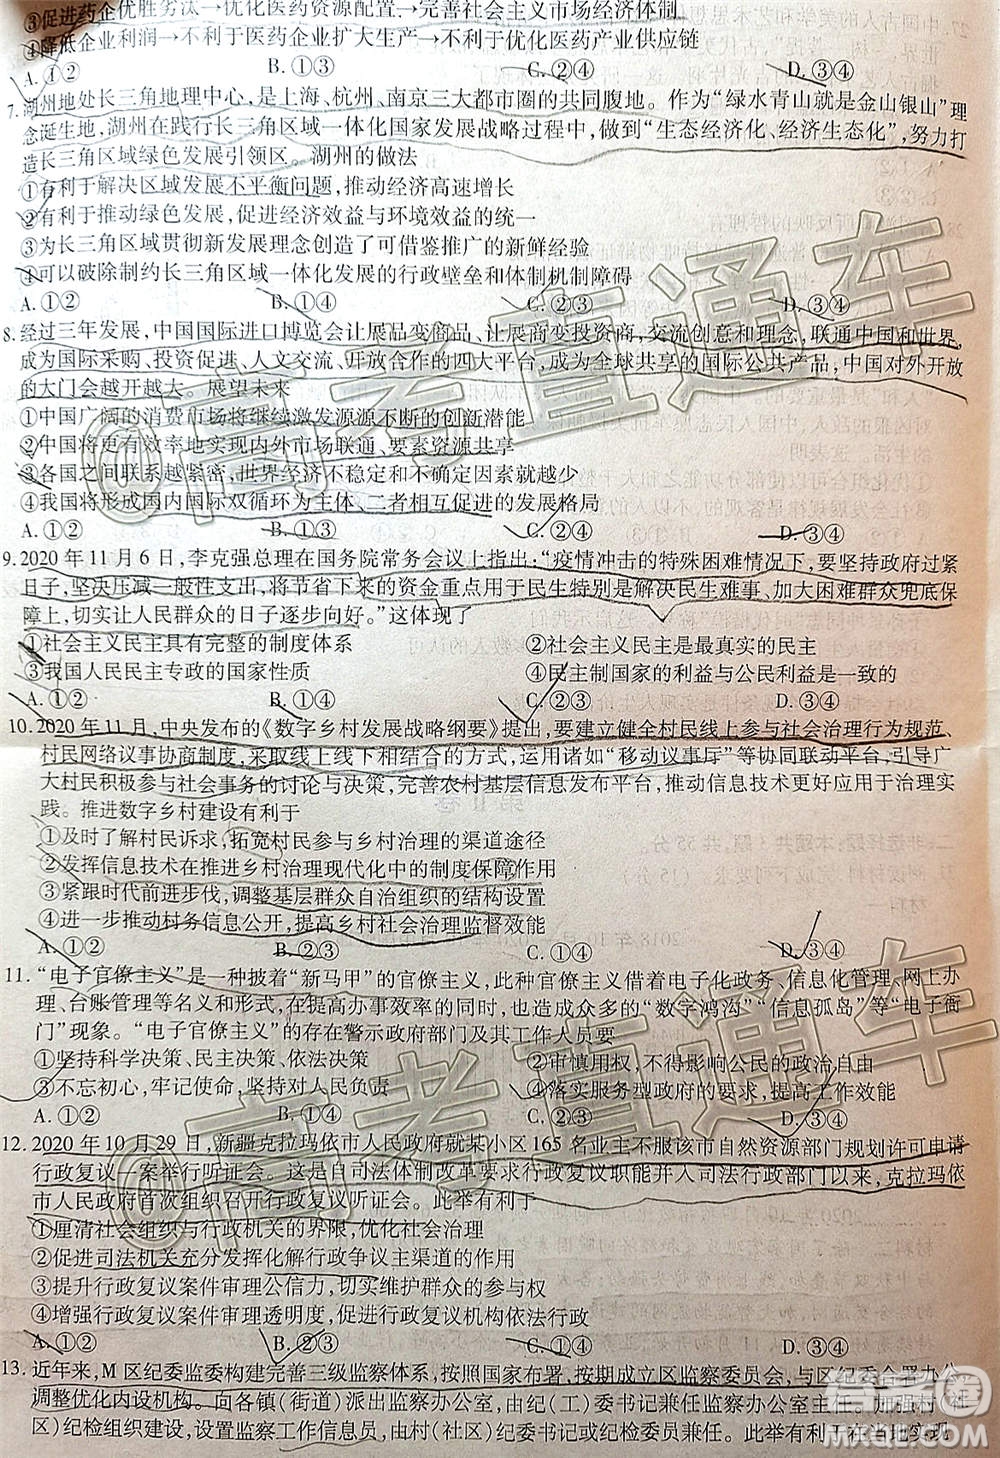 ③促进药企优胜劣汰→优化医药资源配置→完善社会主义市场经济体制
④降低企业利润→不利于医药企业扩大生产→不利于优化医药产业供应链
A.①② B.①③ C.②④ D.③④
7.湖州地处长三角地理中心,是上海、杭州、南京三大都市圈的共同腹地。作为“绿水青山就是金山银山”理
念诞生地,湖州在践行长三角区域一体化国家发展战略过程中,做到“生态经济化、经济生态化”,努力打
造长三角区域绿色发展引领区。湖州的做法
①有利于解决区域发展不平衡问题,推动经济高速增长
②有利于推动绿色发展,促进经济效益与环境效益的统一
③为长三角区域贯彻新发展理念创造了可借鉴推广的新鲜经验
④可以破除制约长三角区域一体化发展的行政壁垒和体制机制障碍
A.①② B.①④ C.②③ D.③④
8.经过三年发展,中国国际进口博览会让展品变商品、让展商变投资商,交流创意和理念,联通中国和世界,
成为国际采购、投资促进、人文交流、开放合作的四大平台,成为全球共享的国际公共产品,中国对外开放
的大门会越开越大。展望未来
①中国广阔的消费市场将继续激发源源不断的创新潜能
②中国将更有效率地实现内外市场联通、要素资源共享
③各国之间联系越紧密,世界经济不稳定和不确定因素就越少
④我国将形成国内国际双循环为主体、二者相互促进的发展格局
A.①② B.①③ C.②④ D.③④
9.2020年11月6日,李克强总理在国务院常务会议上指出:“疫情冲击的特殊困难情况下,要坚持政府过紧
日子,坚决压减一般性支出,将节省下来的资金重点用于民生特别是解决民生难事、加大困难群众兜底保
障上,切实让人民群众的日子逐步向好。”这体现了
①社会主义民主具有完整的制度体系 ②社会主义民主是最真实的民主
③我国人民民主专政的国家性质 ④民主制国家利益与公民利益是一致的
A.①② B.①④ C.②③ D.③④
10.2020年11月,中央发布的《数字乡村发展战略纲要》提出,要建立健全村民线上参与社会治理行为规范、
村民网络议事协商制度,采取线上线下相结合的方式,运用诸如“移动议事厅”等协商、互动平台,引导广
大村民积极参与社会事务的讨论与决策,完善农村基层信息发布平台,推动信息技术更好应用于治理实
践。推进数字乡村建设有利于
①及时了解村民诉求,拓宽村民参与乡村治理的渠道途径
②发挥信息技术在推进乡村治理现代化中的制度保障作用
③紧跟时代前进步伐,调整基层群众自治组织的结构设置
④进一步推动村务信息公开,提高乡村社会治理监督效能
A.①② B.②③ C.①④ D.③④
11.“电子官僚主义”是一种披着“新马甲”的官僚主义,此种官僚主义借着电子化政务、信息化管理、网上办
理、台账管理等名义和形式,在提高办事效率的同时,也出现了一定的“数字鸿沟”“信息孤岛”等“电子衙
门”现象。“电子官僚主义”的存在警示政府部门及其工作人员要
①坚持科学决策、民主决策、依法决策 ②审慎用权,不得影响公民的政治自由
③不忘初心,牢记使命,坚持对人民负责 ④落实服务型政府的要求,提高工作效能
A.①② B.①③ C.②④ D.③④
12.2020年10月29日,新疆克拉玛依市人民政府就某小区165名业主不服该市自然资源部门规划许可申请
行政复议一案举行听证会。这是自司法体制改革将行政复议职能并入司法行政部门以来,克拉玛依
市人民政府首次组织召开行政复议听证会。此举有利于
①厘清社会组织与行政机关的界限,优化社会治理
②促进司法机关充分发挥化解行政争议主渠道的作用
③提升行政复议案件审理公信力,切实维护群众的参与权
④增强行政复议案件审理透明度,促进行政复议机构依法行政
A.①② B.①③ C.②④ D.③④
13.近年来,M区纪委监委构建完善三级监察体系,按照国家布署,按期成立区监察委员会,与区纪委合署办公,
调整优化内设机构。向各镇(街道)派出监察办公室,由纪(工)委书记兼任监察办公室主任。加强村(社
区)纪检组织建设,设置监察信息员,由村(社区)纪委书记或纪检委员兼任。此举有利于在当地实现
@高考直通车